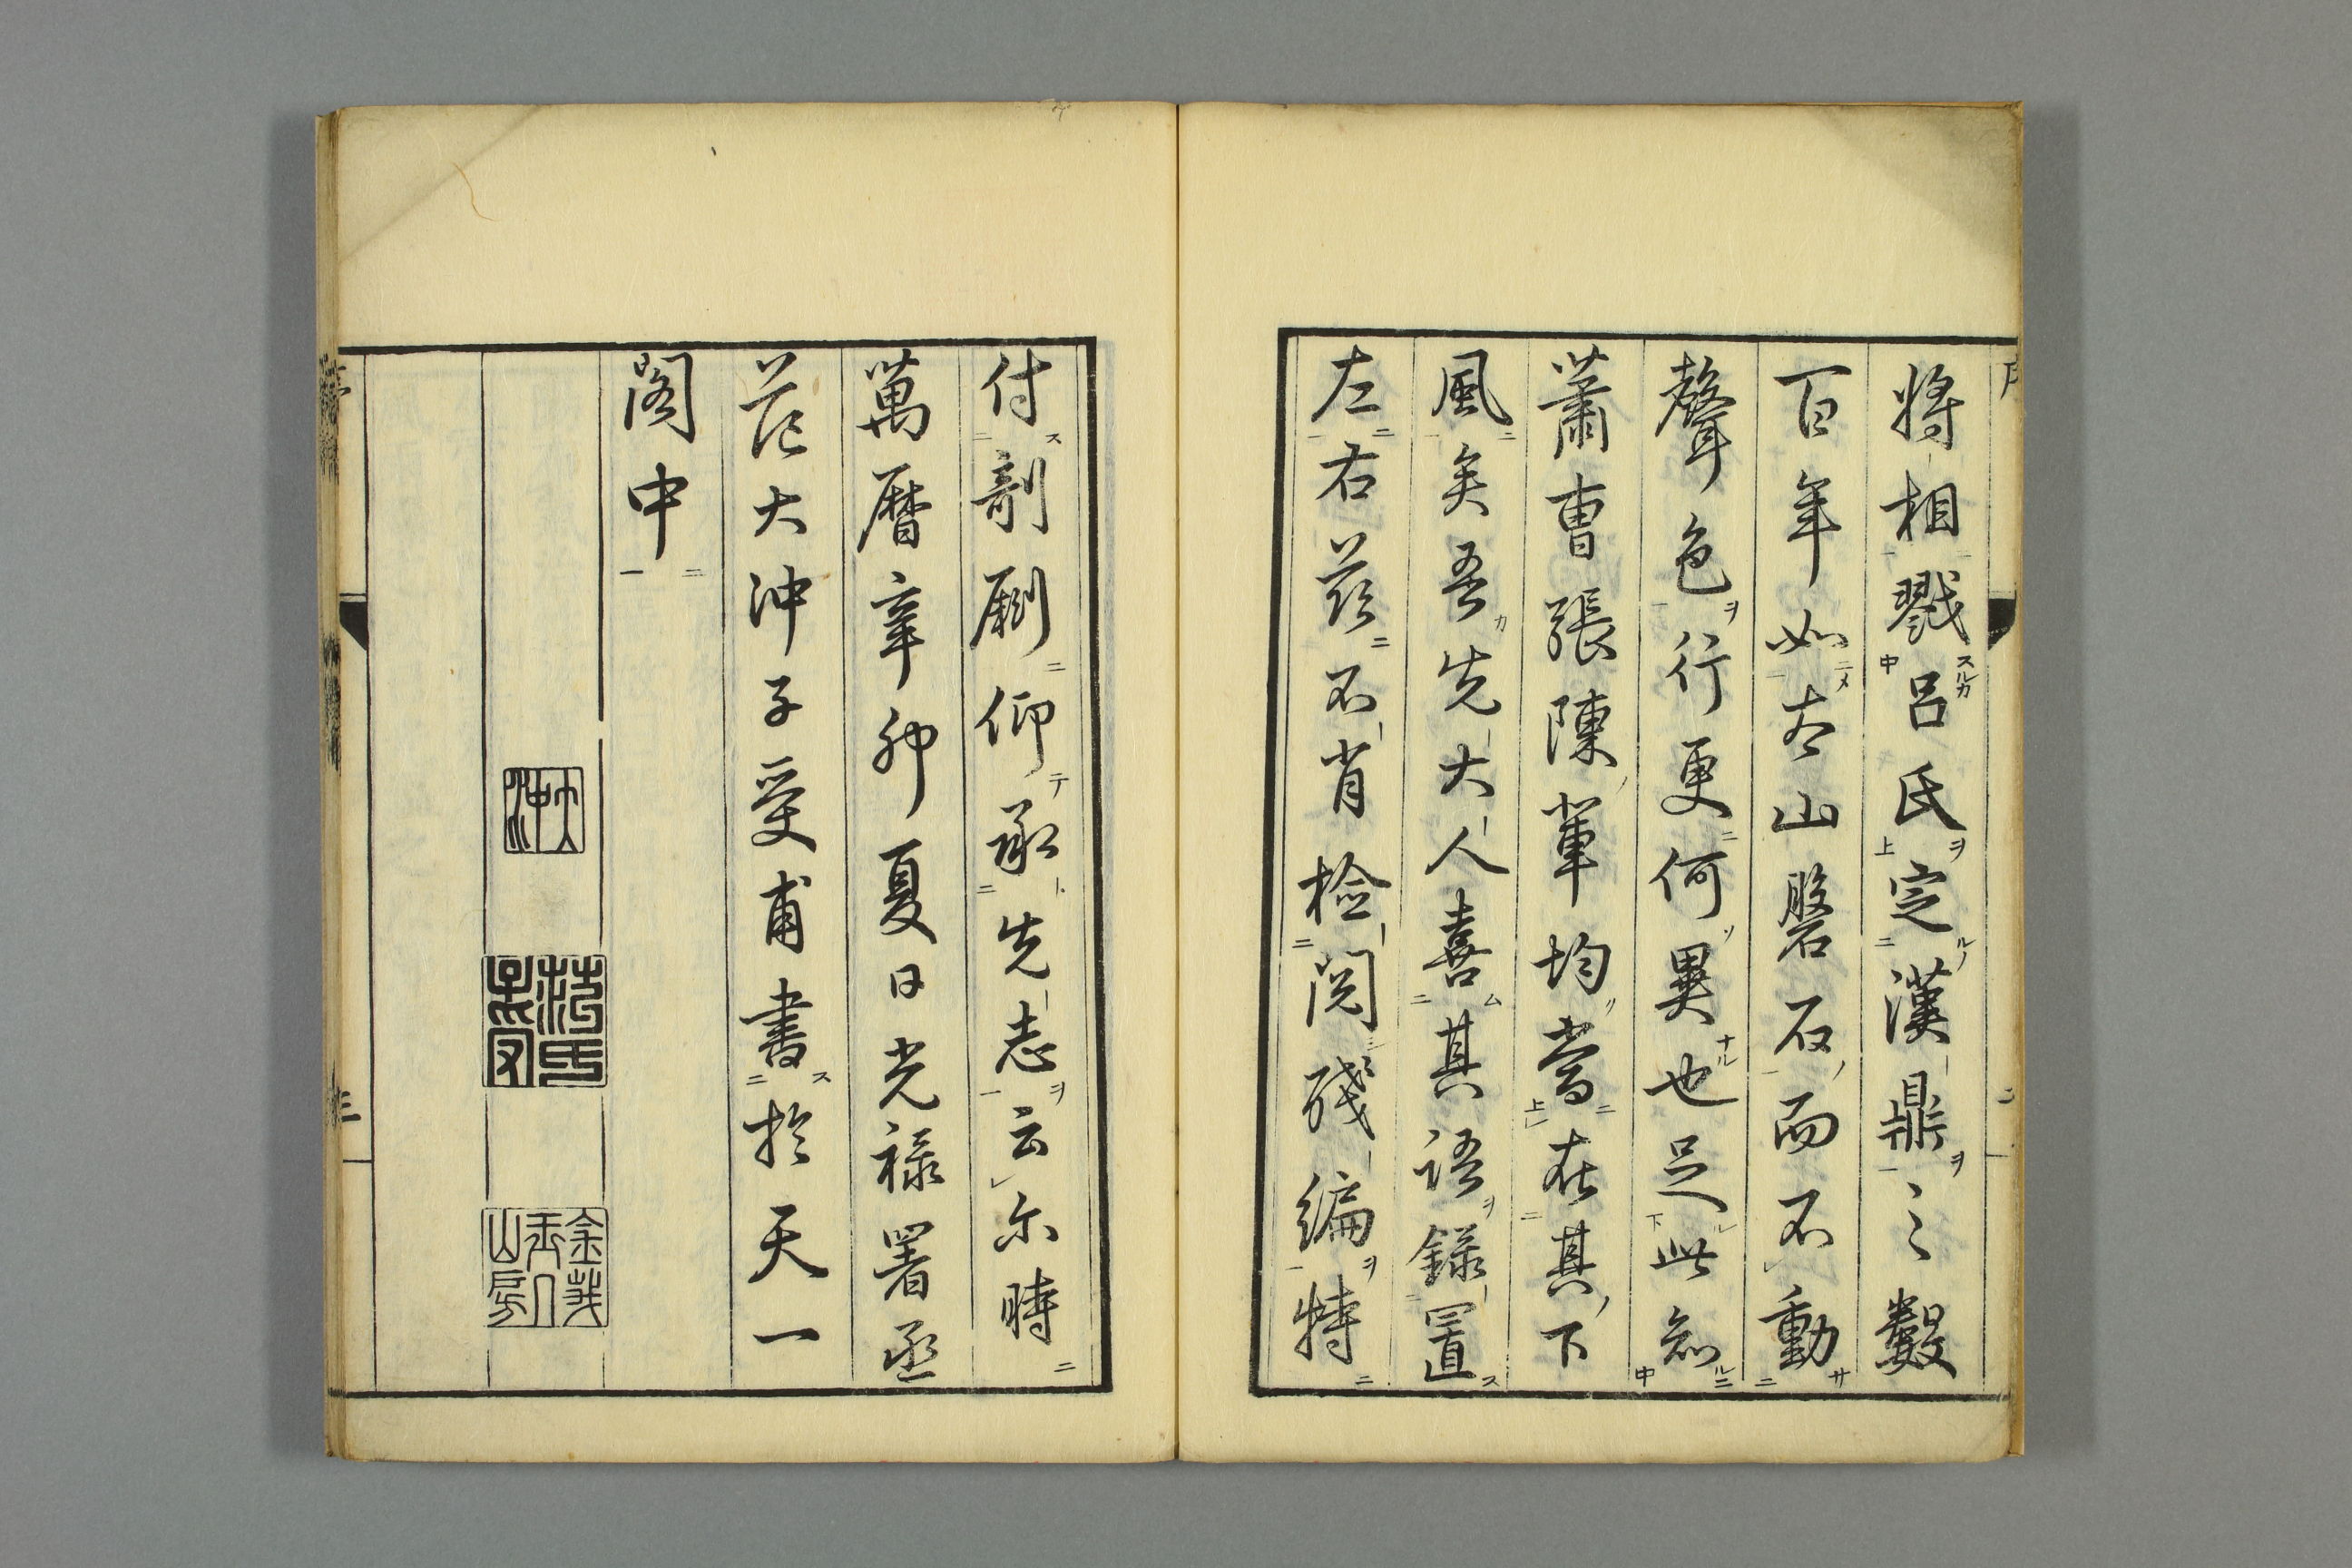 將相戮呂氏定漢鼎之數
百年如太山磐石而不動
聲色行更何異也足此知
蕭曹張陳輩均當在其下
風矣吾先大人喜其語錄置
左右茲不肖檢閱殘編特
付剞劂仰承先志云尓時
萬曆辛卯夏日光祿署丞
范大沖子受甫書於天一
閣中
大沖
范氏子受
金莪玉几山房
序
三